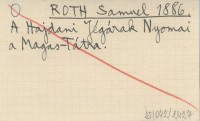 ROTH Samuel 1886.
A Hajdani Jégárak Nyomai
a Magas-Tátra.